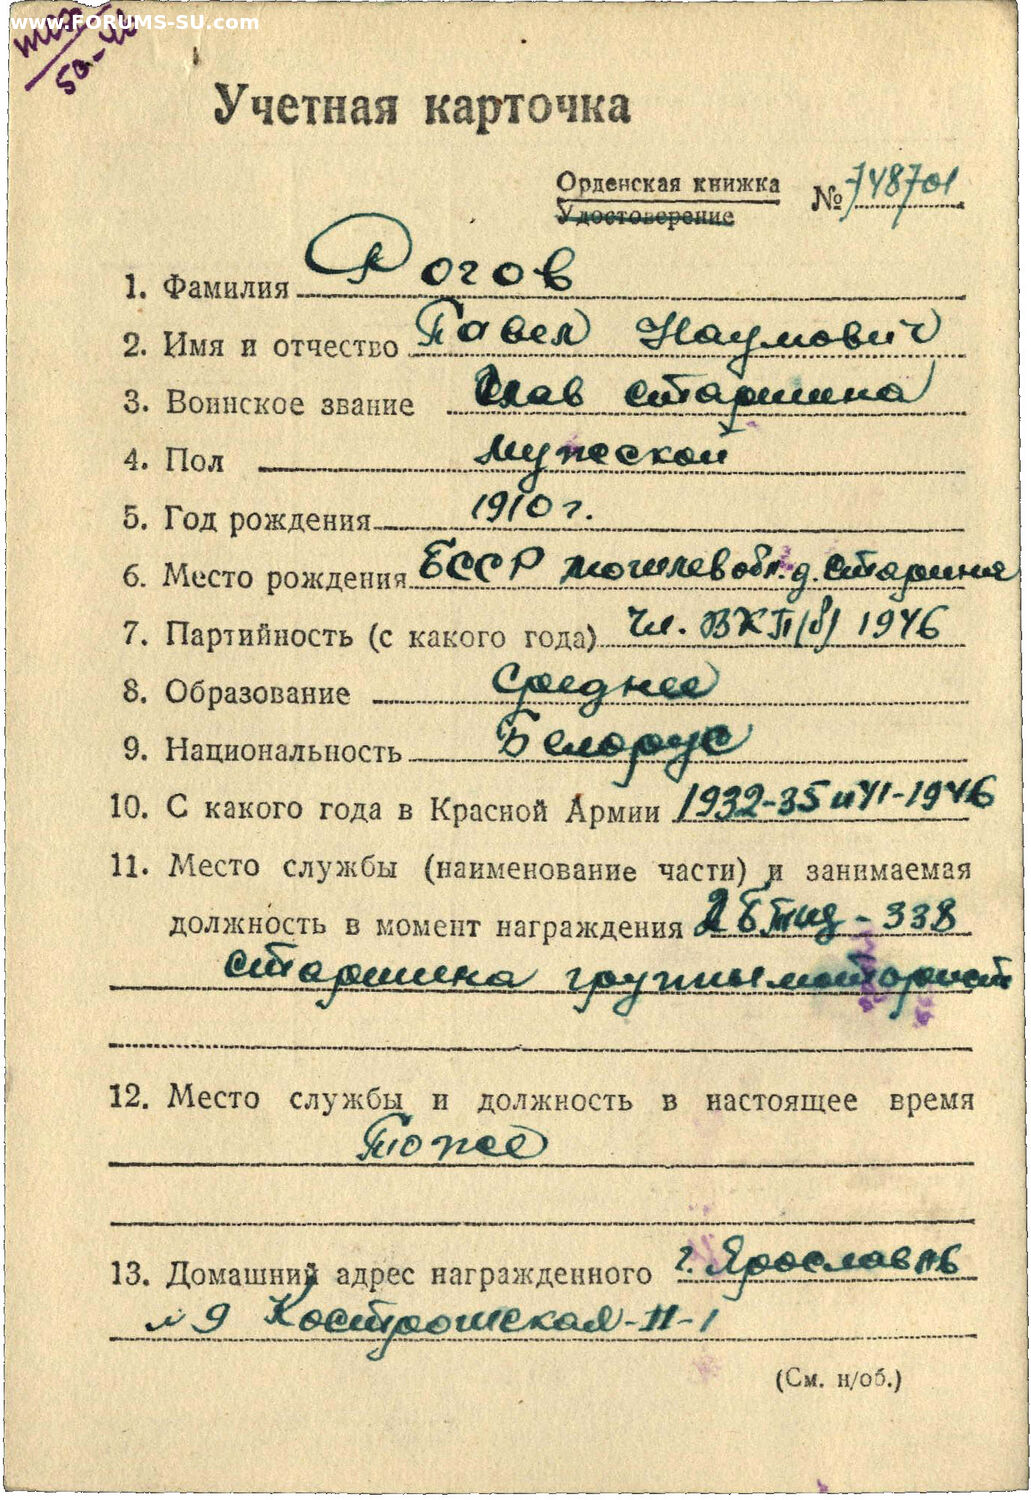 www.FORUMS-SU.com
Учетная карточка
Орденская книжка № 748701
Удостоверение
1. Фамилия Рогов
2. Имя и отчество Павел Наумович
3. Воинское звание Глав старшина
4. Пол Мужской
5. Год рождения 1910 г.
6. Место рождения БССР Могилев обл. д. Старинне
7. Партийность (с какого года) Чл. ВКП/б/ 1946
8. Образование Среднее
9. Национальность Белорус
10. С какого года в Красной Армии 1932-35 и 41-1946
11. Место службы (наименование части) и занимаемая
должность в момент награждения 2 Бтщ - 338
старшина группы мотористо
12. Место службы и должность в настоящее время
Тоже
13. Домашний адрес награжденного г. Ярославль
9 Костромская-II-1
(См. н/об.)